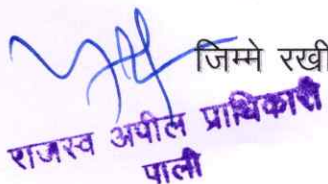 जिम्मे रखी
राजस्व अपील प्राधिकारी
पाली